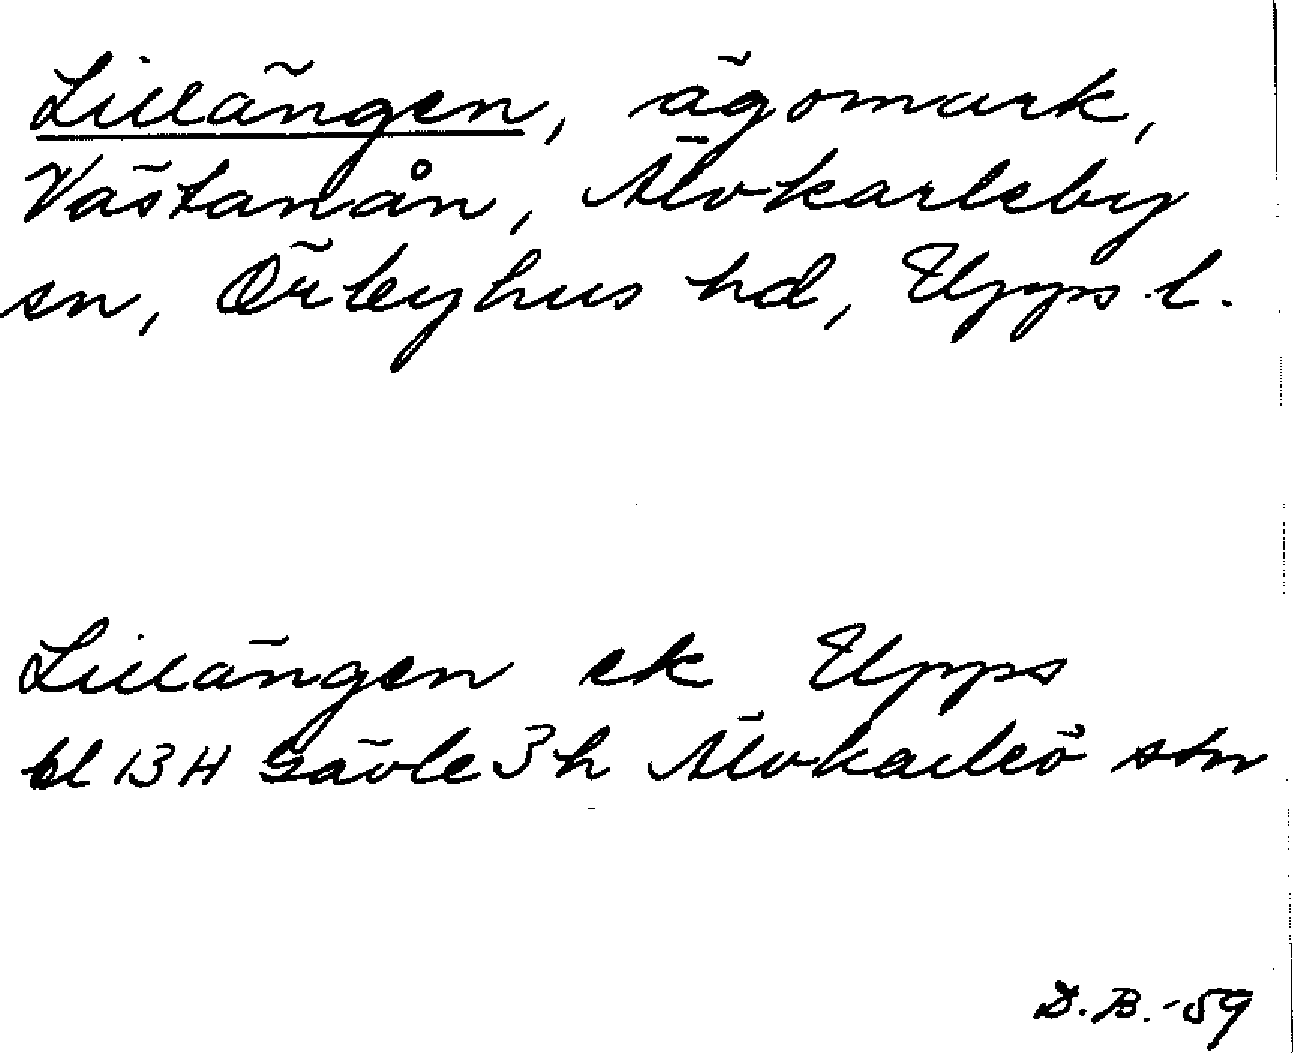 Lillängen, ägomark,
Västanån, Älvkarleby
sn, Örbyhus hd, Upps. l.
Lillängen ek Upps
bl 13 H Gävle 3 h Älvkarleö stn
D.B.-59